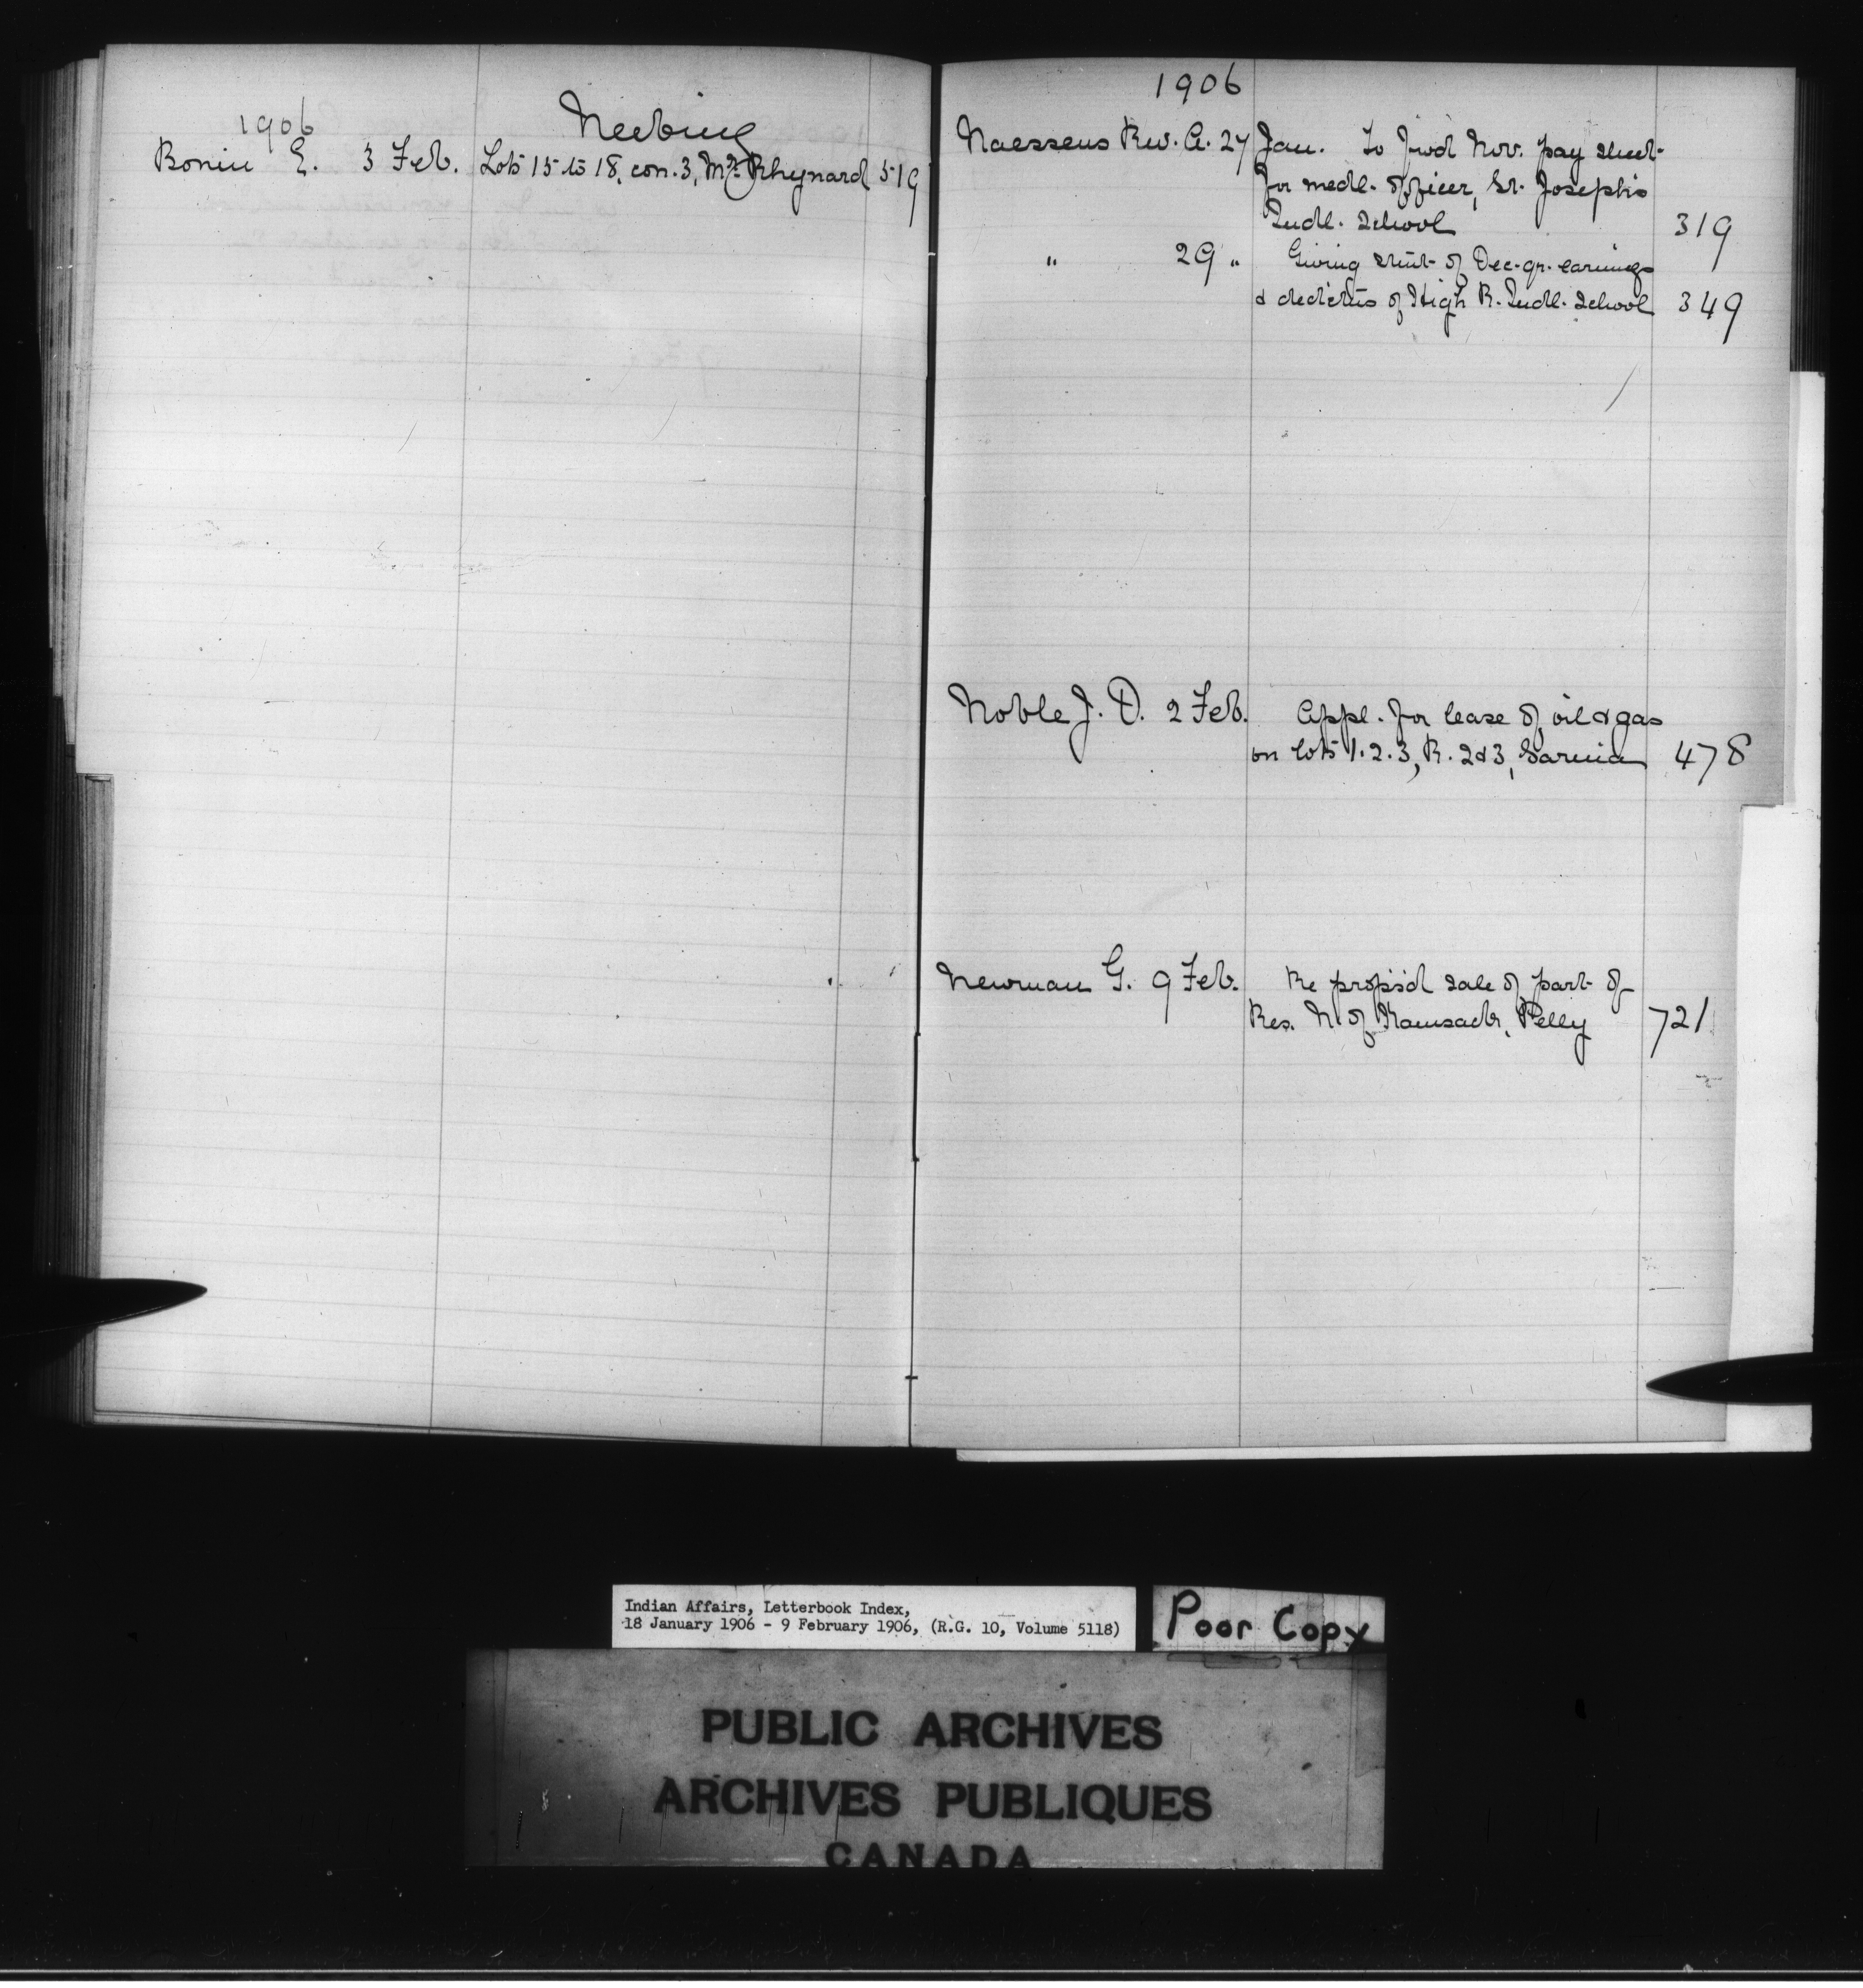 1906
Neebing
Bonin E. 3 Feb. Lots 15 to 18, con. 3, Mr. Rhynard 519
1906
Naessens Rev. A. 27 Jan. To fwd Nov. pay sheet
for medl. officer, St. Joseph's
Indl. School 319
" 29 " Giving stmt of Dec. qr. earnings
& deductns of High R. Indl. School 349
Noble J. D. 2 Feb. Appl. for lease of oil & gas
on lots 1.2.3, R. 2&3, Sarnia 478
Newman G. 9 Feb. Re propsd sale of part of
Res. N. of Kamsack, Pelly 721
Indian Affairs, Letterbook Index,
18 January 1906 - 9 February 1906, (R.G. 10, Volume 5118)
Poor Copy
PUBLIC ARCHIVES
ARCHIVES PUBLIQUES
CANADA